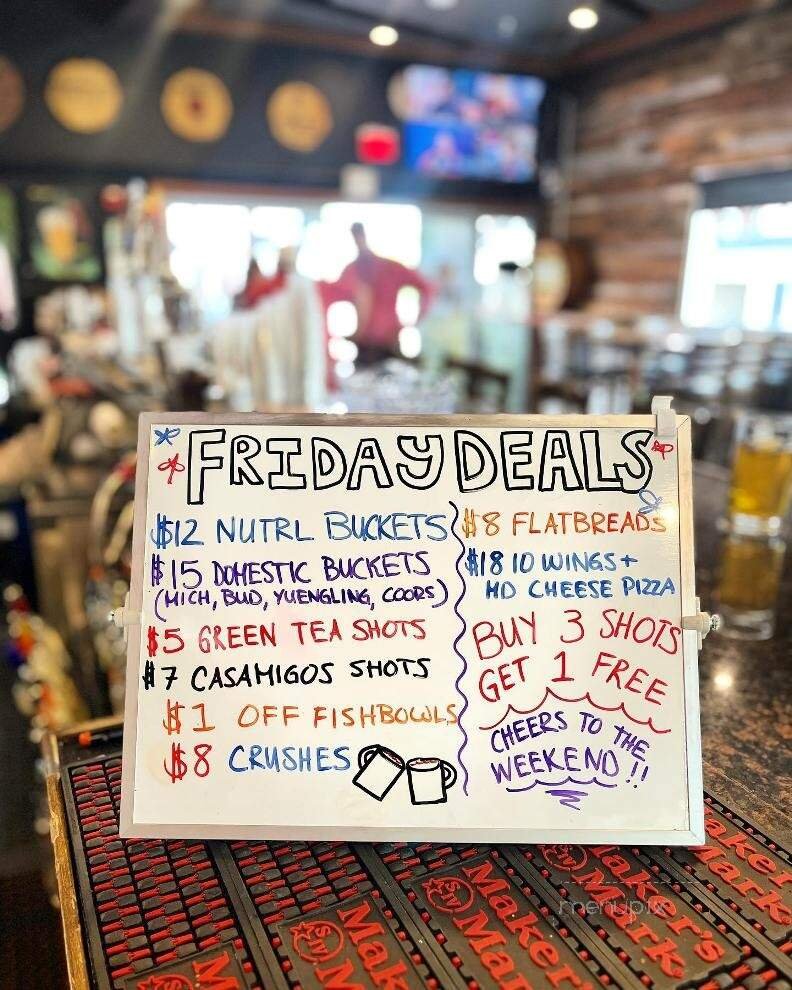 FRIDAY DEALS
$12 NUTRL BUCKETS
$15 DOMESTIC BUCKETS
(MICH, BUD, YUENGLING, COORS)
$5 GREEN TEA SHOTS
$7 CASAMIGOS SHOTS
$1 OFF FISHBOWLS
$8 CRUSHES
$8 FLATBREADS
$18 10 WINGS +
MD CHEESE PIZZA
BUY 3 SHOTS
GET 1 FREE
CHEERS TO THE
WEEKEND!!
Maker's
Mark
Maker's
Mark
Maker's
Mark
menupix